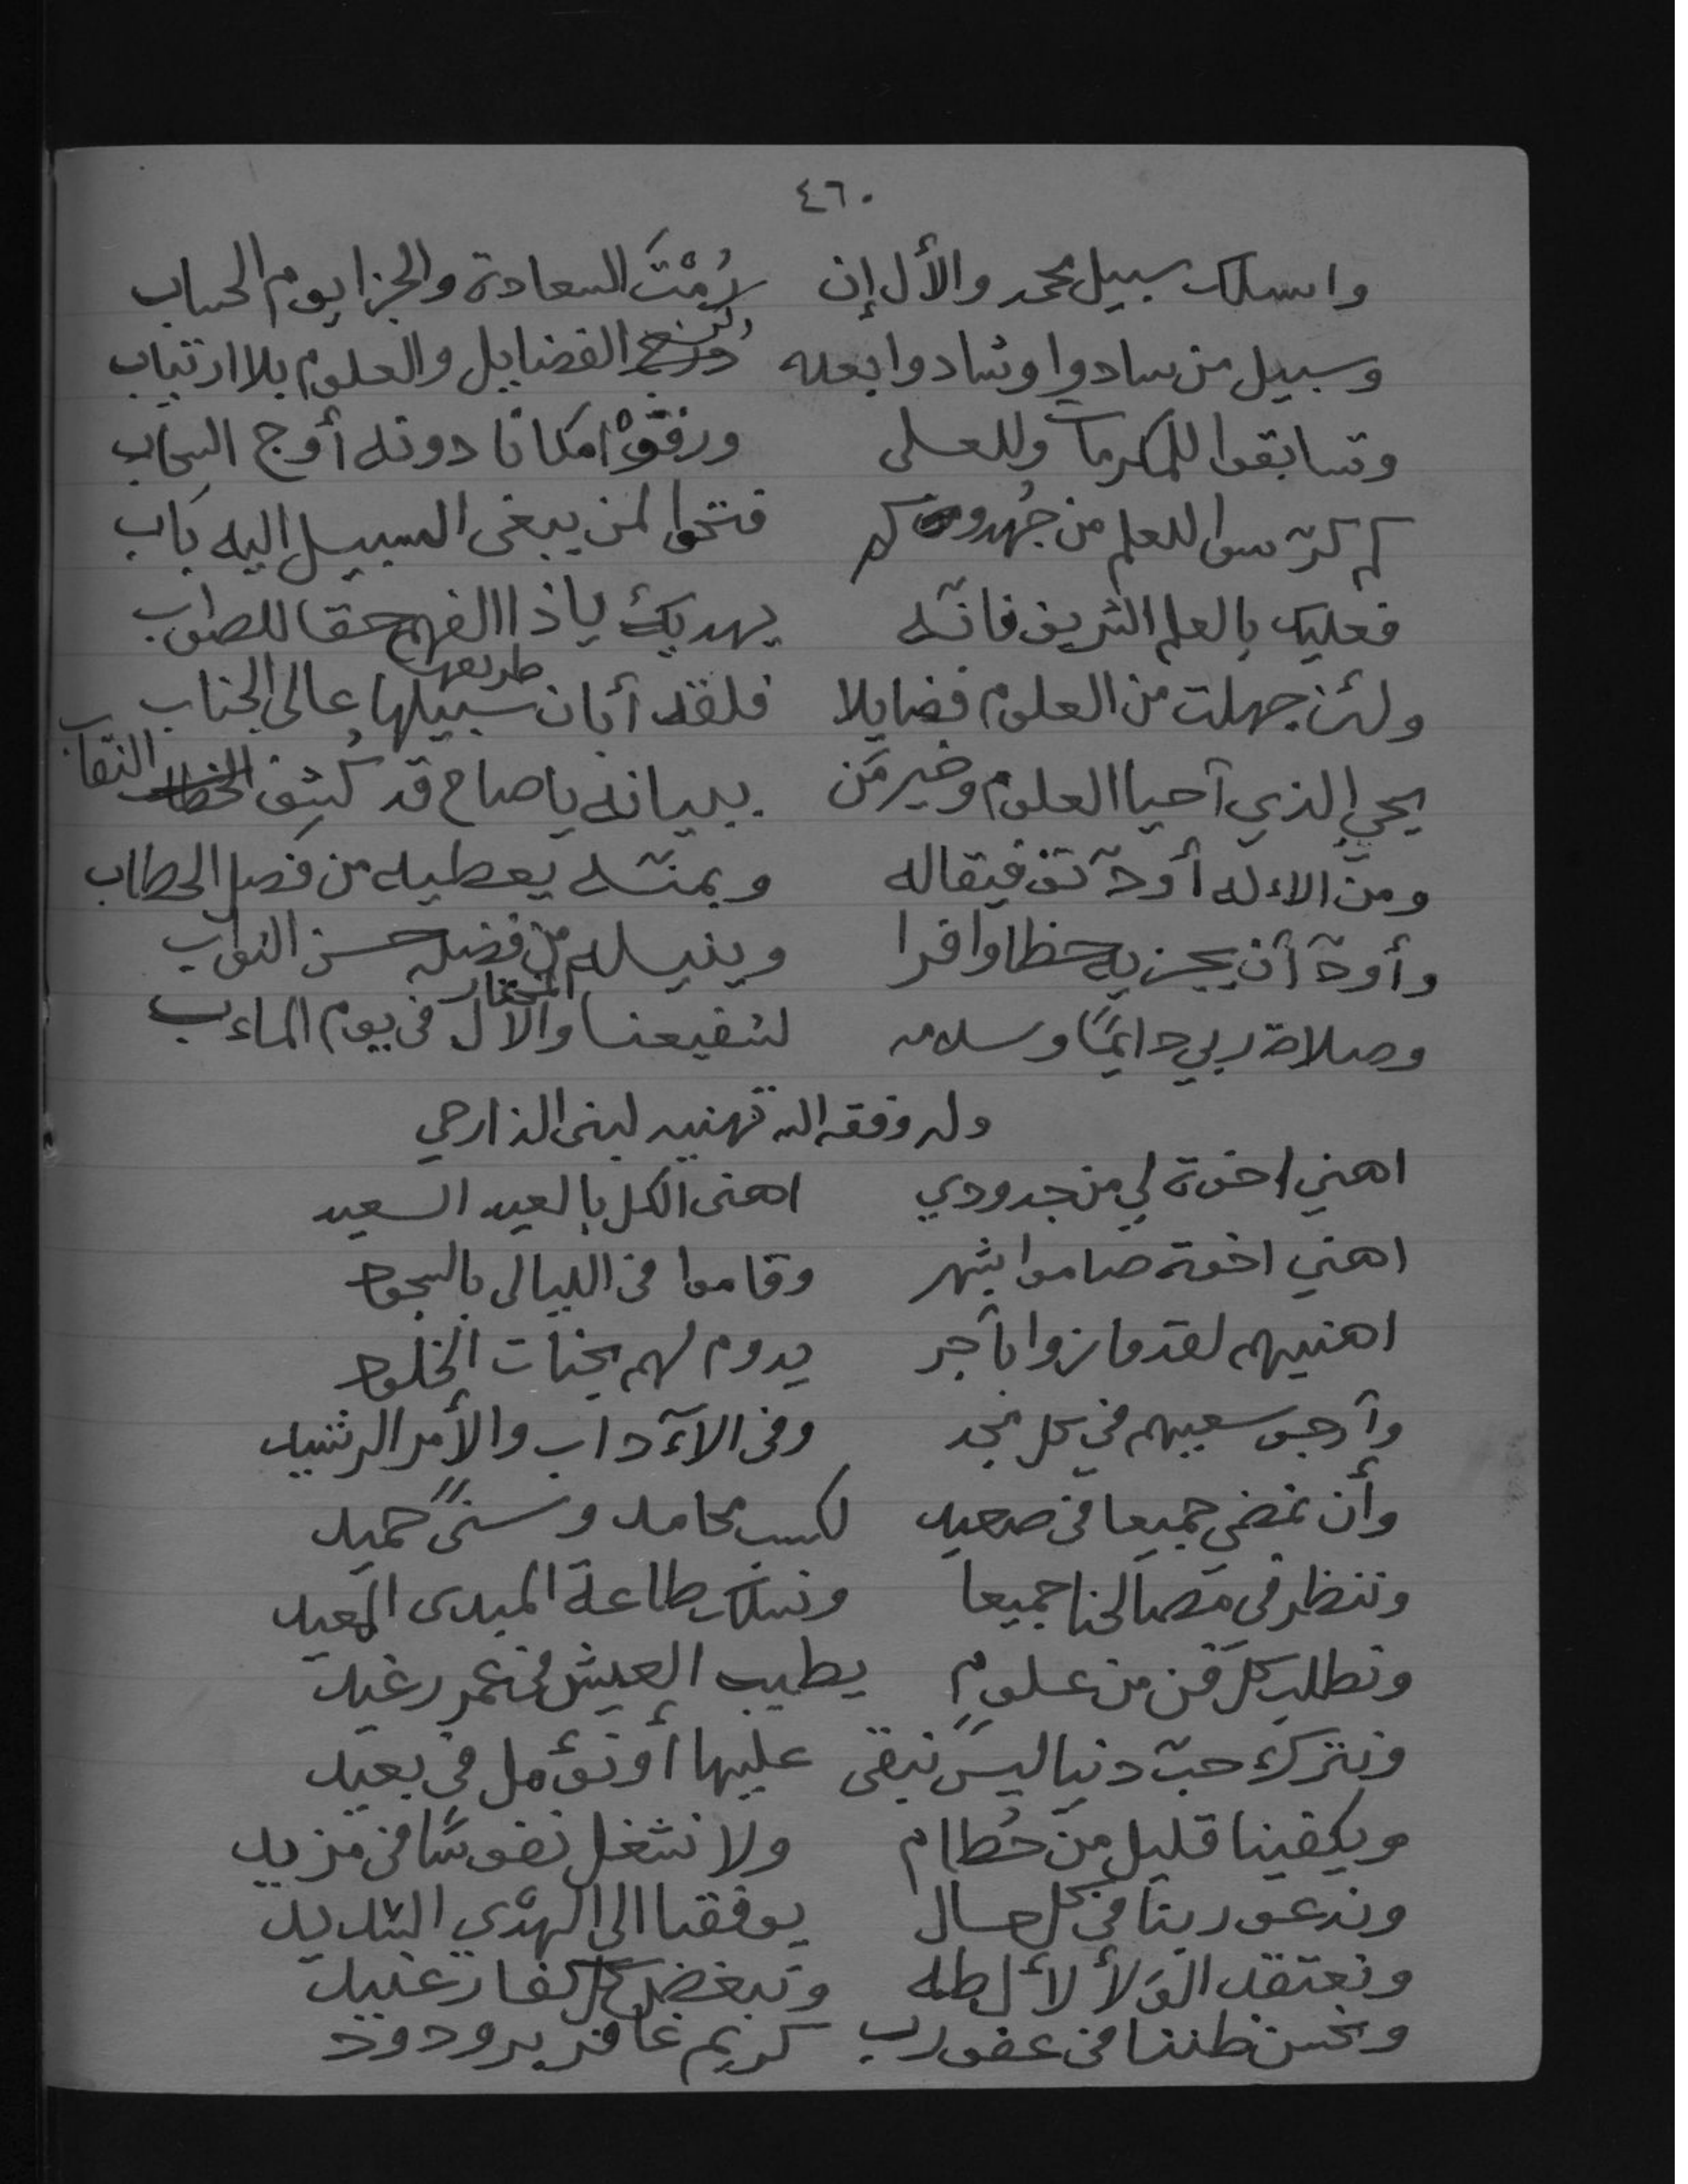 ٤٦٠
واسلك سبيل محمد والأل إن رُمْتَ السعادة والجزا يوم الحساب
وسبيل من سادوا وشادوا بعده الفضايل والعلوم بلا ارتياب
وتسابقوا للمكرمات وللعلى ورقَوْا مكانا دونه أوج السحاب
كم كرّسوا للعلم من جُهد وكم فتحوا لمن يبغى السبيل إليه باب
فعليك بالعلم الشريف فانّه يهديك ياذا الفهم حقا للصواب
ولئن جهلت من العلوم فضايلا فلقد أبان سبيلها طريقها عالى الجناب
يحي الذي أحيا العلوم وخير مَن ببيانه يا صاح قد كُشِف النقاب
ومن الاءله أودّ توفيقاله وبمنّه يعطيه من فصل الخطاب
وأودّ أن يجزيه حظا وافرا وينيله من فضله حسن الثواب
وصلاة ربي دايمًا وسلامه لشفيعنا المختار والآل في يوم الماءب
وله وفقه الله تهنيه لبنى الذارحي
اهني اخوة لي من جدودي اهنى الكل بالعيد السعيد
اهني اخوة صاموا بشهر وقاموا في الليالى بالسجود
اهنيهم لقد فازوا بأجر يدوم لهم بجنات الخلود
وأرجو سعيهم في كل مجد وفى الاءداب والأمر الرشيد
وأن نمضي جميعا في صعيد لكسب محامد وسنىً حميد
وننظر في مصالحنا جميعا ونسلك طاعة المبدى المعيد
ونطلب كل فن من علومٍ يطيب العيش في عمر رغيد
ونترك حبّ دنيا ليس نبقى عليها أو نؤمل في بعيد
ويكفينا قليل من حُطام ولا نشغل نفوسًا في مزيد
وندعو ربنا في كل حال يوفقنا الى الهدى السديد
ونعتقد الوَلأ لأل طه ونبغض كل كفار عنيد
ونحسن ظننا في عفو رب كريم غافر بر ودود